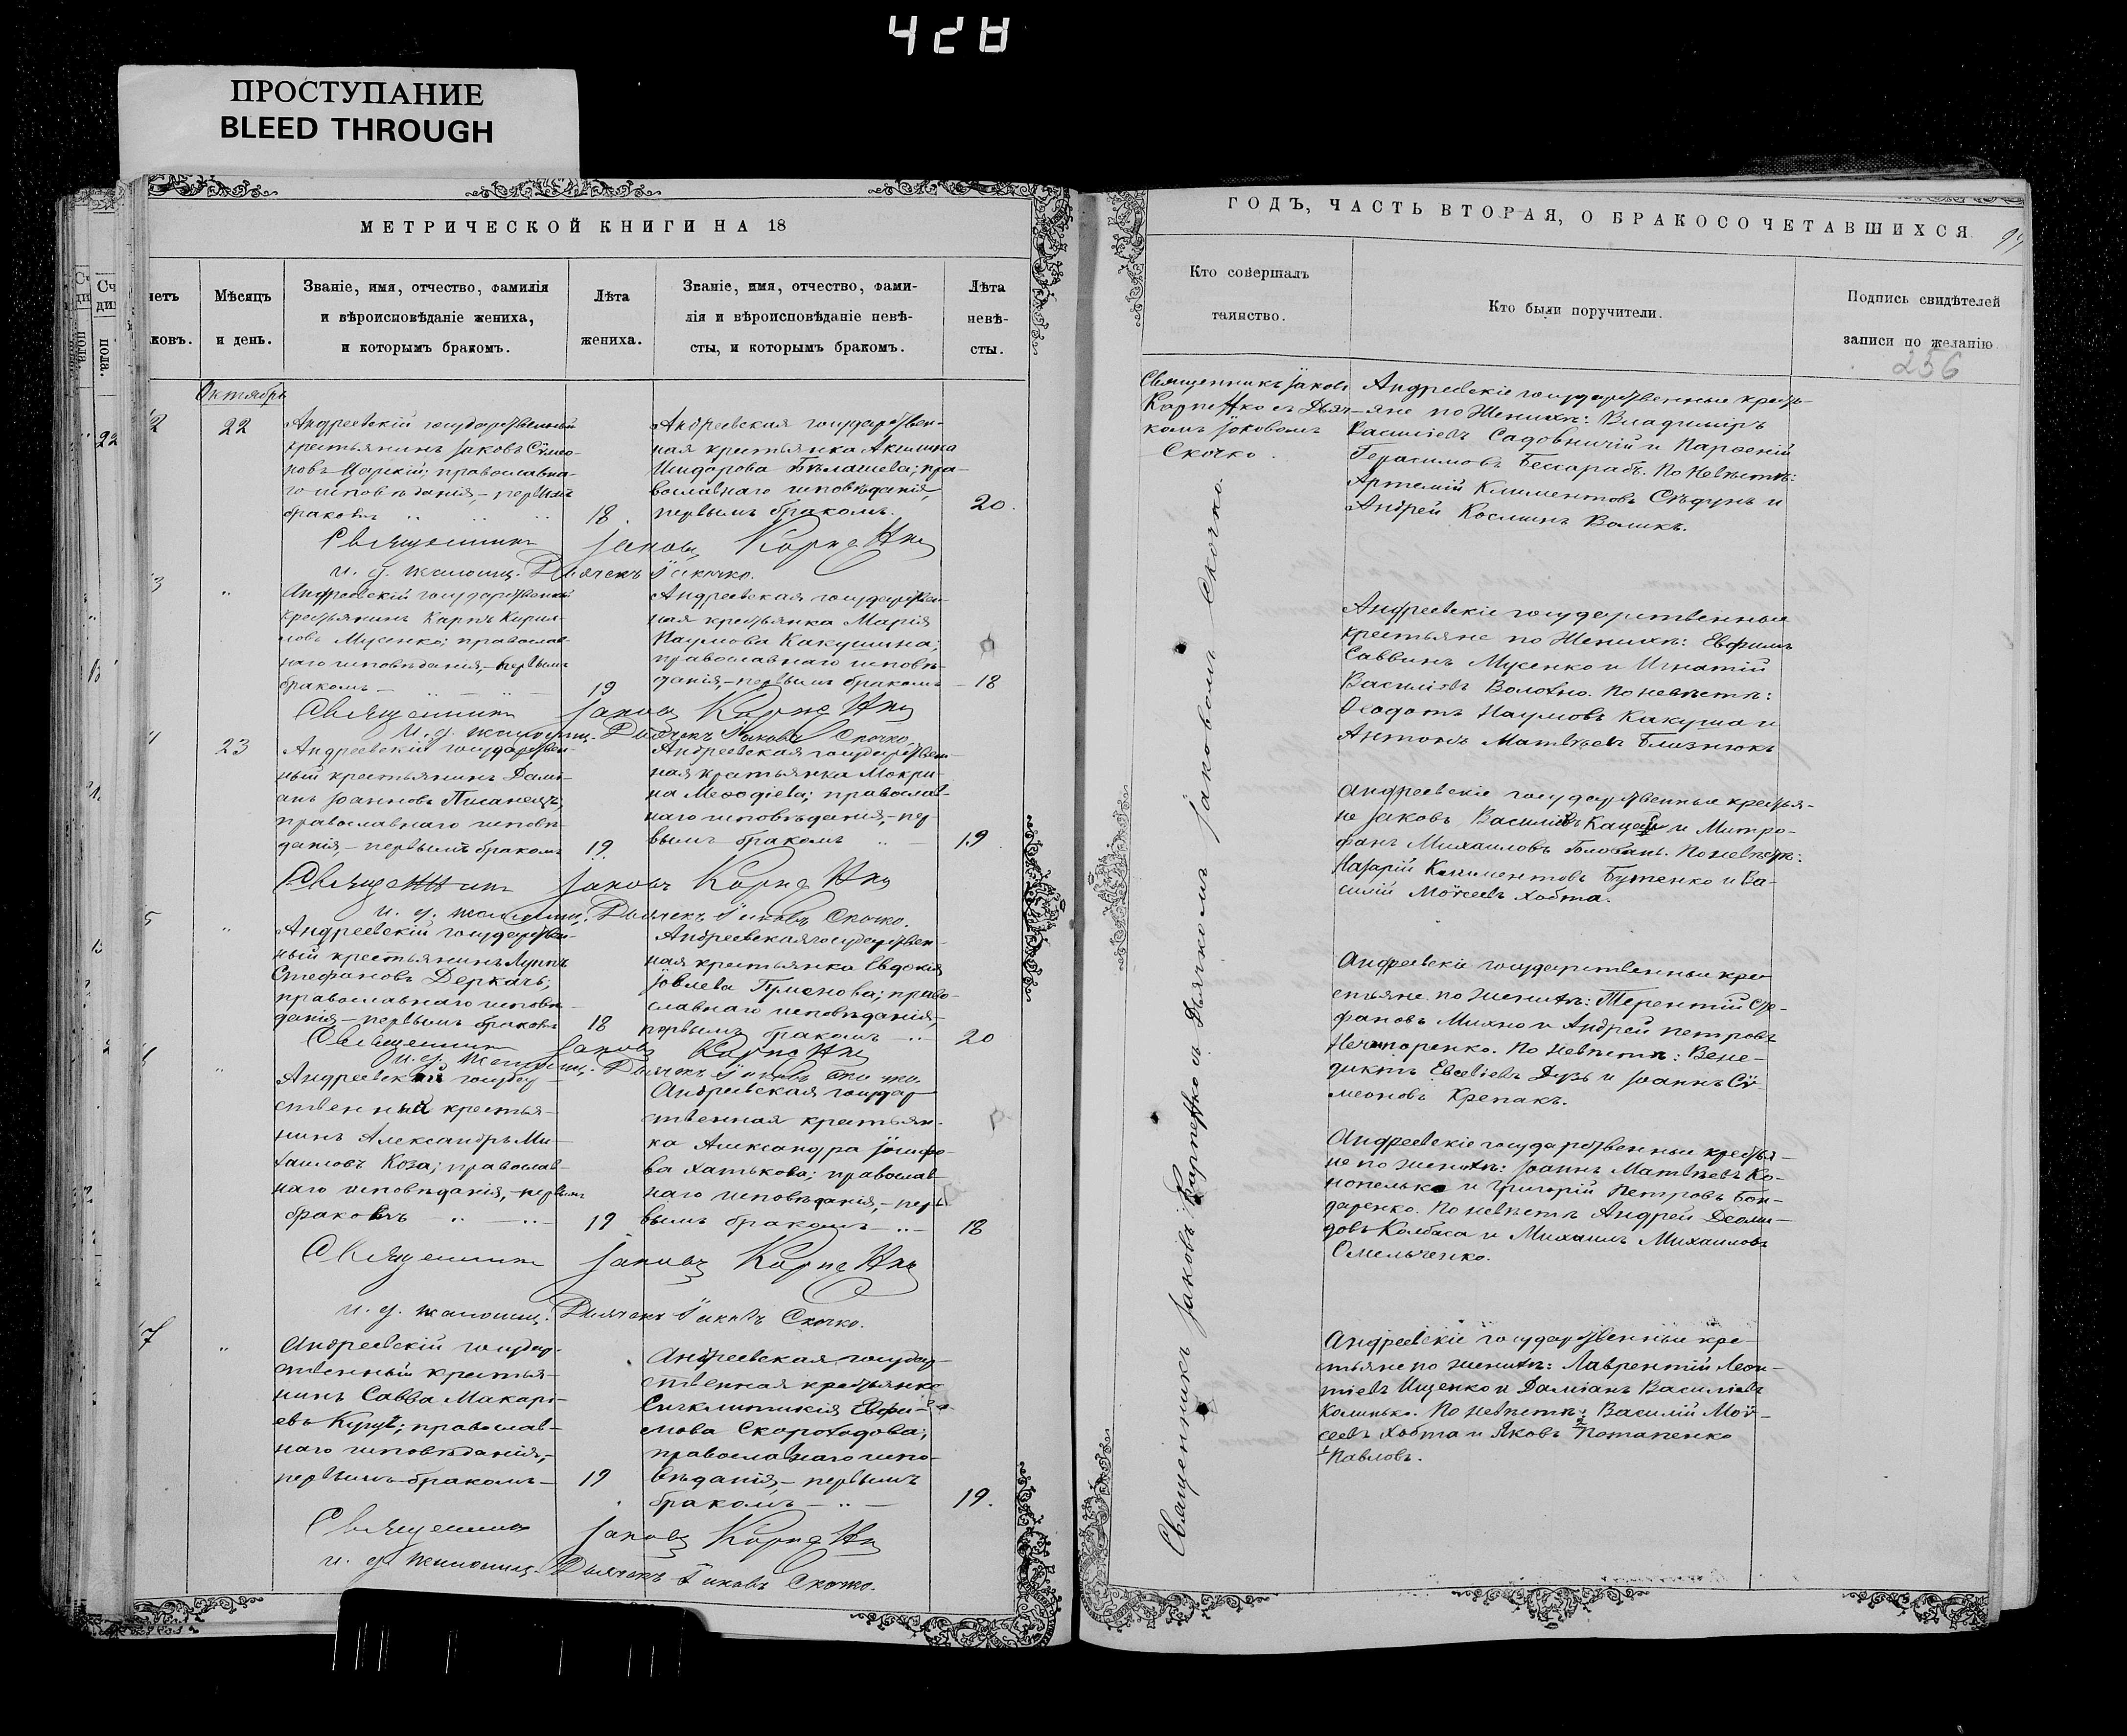 428
ПРОСТУПАНИЕ
BLEED THROUGH
МЕТРИЧЕСКОЙ КНИГИ НА 18
Мѣсяцъ
и день.
Званіе, имя, отчество, фамилія
и вѣроисповѣданіе жениха,
и которымъ бракомъ.
Лѣта
жениха.
Званіе, имя, отчество, фами-
лія и вѣроисповѣданіе невѣ-
сты, и которымъ бракомъ.
Лѣта
невѣ-
сты.
Октябрь
22
Андреевскій государственный
крестьянинъ Іаковъ Сѵмео-
новъ православна-
го исповѣданія, – первымъ
бракомъ
18
Андреевская государствен-
ная крестьянка Акилина
православнаго исповѣданія,
первымъ бракомъ.
20.
Священникъ Іаковъ Карпенко
и. д. псаломщ. Дьячекъ Скочко.
3
Андреевскій государственный
крестьянинъ Карпъ Кирил-
ловъ Мусенко; православ-
наго исповѣданія, – первымъ
бракомъ
19
Андреевская государствен-
ная крестьянка Марія
Наумова Какушина;
православнаго исповѣ-
данія, – первымъ бракомъ
18
Священникъ Іаковъ Карпенко
и. д. псаломщ. Дьячекъ Іаковъ Скочко.
23
Андреевскій государствен-
ный крестьянинъ Дамі-
анъ Іоанновъ Писанецъ;
православнаго исповѣ-
данія, – первымъ бракомъ
19.
Андреевская государствен-
ная крестьянка Мокри-
на Меѳодіева; православ-
наго исповѣданія, – пер-
вымъ бракомъ
19
Священникъ Іаковъ Карпенко
и. д. псаломщ. Дьячекъ Іаковъ Скочко.
5
Андреевскій государствен-
ный крестьянинъ Луппъ
Стефановъ Деркачъ;
православнаго исповѣ-
данія – первымъ бракомъ
18
Андреевская государствен-
ная крестьянка Евдокія
Іовлева право-
славнаго исповѣданія,
первымъ бракомъ
20
Священникъ Іаковъ Карпенко
и. д. псаломщ. Дьячекъ Іаковъ Скочко.
Андреевскій государ-
ственный крестья-
нинъ Александръ Ми-
хаиловъ Коза; православ-
наго исповѣданія, – первымъ
бракомъ
19
Андреевская государ-
ственная крестьян-
ка Александра Іосифо-
ва Хатькова; православ-
наго исповѣданія, – пер-
вымъ бракомъ
18
Священникъ Іаковъ Карпенко
и. д. псаломщ. Дьячекъ Іаковъ Скочко.
7
Андреевскій государ-
ственный крестья-
нинъ Савва Макарі-
евъ православ-
наго исповѣданія,
первымъ бракомъ
19
Андреевская государ-
ственная крестьянка
Сигклитикія Евфи-
мова Скороходова;
православнаго испо-
вѣданія, – первымъ
бракомъ
19.
Священникъ Іаковъ Карпенко
и. д. псаломщ. Дьячекъ Іаковъ Скочко.
ГОДЪ, ЧАСТЬ ВТОРАЯ, О БРАКОСОЧЕТАВШИХСЯ.
Кто совершалъ
таинство.
Кто были поручители.
Подпись свидѣтелей
записи по желанію.
256
Священникъ Іаковъ
Карпенко съ Дьяч-
комъ Іаковомъ
Скочко.
Священникъ Іаковъ Карпенко съ Дьячкомъ Іаковомъ Скочко.
Андреевскіе государственные кресть-
яне по женихѣ: Владиміръ
Василіевъ Садовничій и Парѳеній
Герасимовъ Бессарабъ. По невѣстѣ:
Артемій Климентовъ Сѣдунъ и
Андрей Косминъ Воликъ.
Андреевскіе государственные
крестьяне по женихѣ: Евфимъ
Саввинъ Мусенко и Игнатій
Василіевъ Волохно. По невѣстѣ:
Ѳеодотъ Наумовъ Какуша и
Антонъ Матвѣевъ Близнюкъ
Андреевскіе государственные крестья-
не Іаковъ Василіевъ и Митро-
фанъ Михаиловъ Голованъ. По невѣстѣ:
Назарій Климентовъ Бутенко и Ва-
силій Моѵсеевъ Хобта.
Андреевскіе государственные кре-
стьяне по женихѣ: Терентій Сте-
фановъ Михно и Андрей Петровъ
Нечипоренко. По невѣстѣ: Вене-
диктъ Евсевіевъ Дузь и Іоаннъ Сѵ-
меоновъ Крепакъ.
Андреевскіе государственные крестья-
не по женихѣ: Іоаннъ Матвѣевъ Ко-
нопелько и Григорій Петровъ Бон-
даренко. По невѣстѣ Андрей Деоми-
довъ Колбаса и Михаилъ Михаиловъ
Омельченко.
Андреевскіе государственные кре-
стьяне по женихѣ: Лаврентій Леон-
тіевъ Ищенко и Даміанъ Василіевъ
Калинько. По невѣстѣ: Василій Моѵ-
сеевъ Хобта и Яковъ Потапенко
Павловъ.